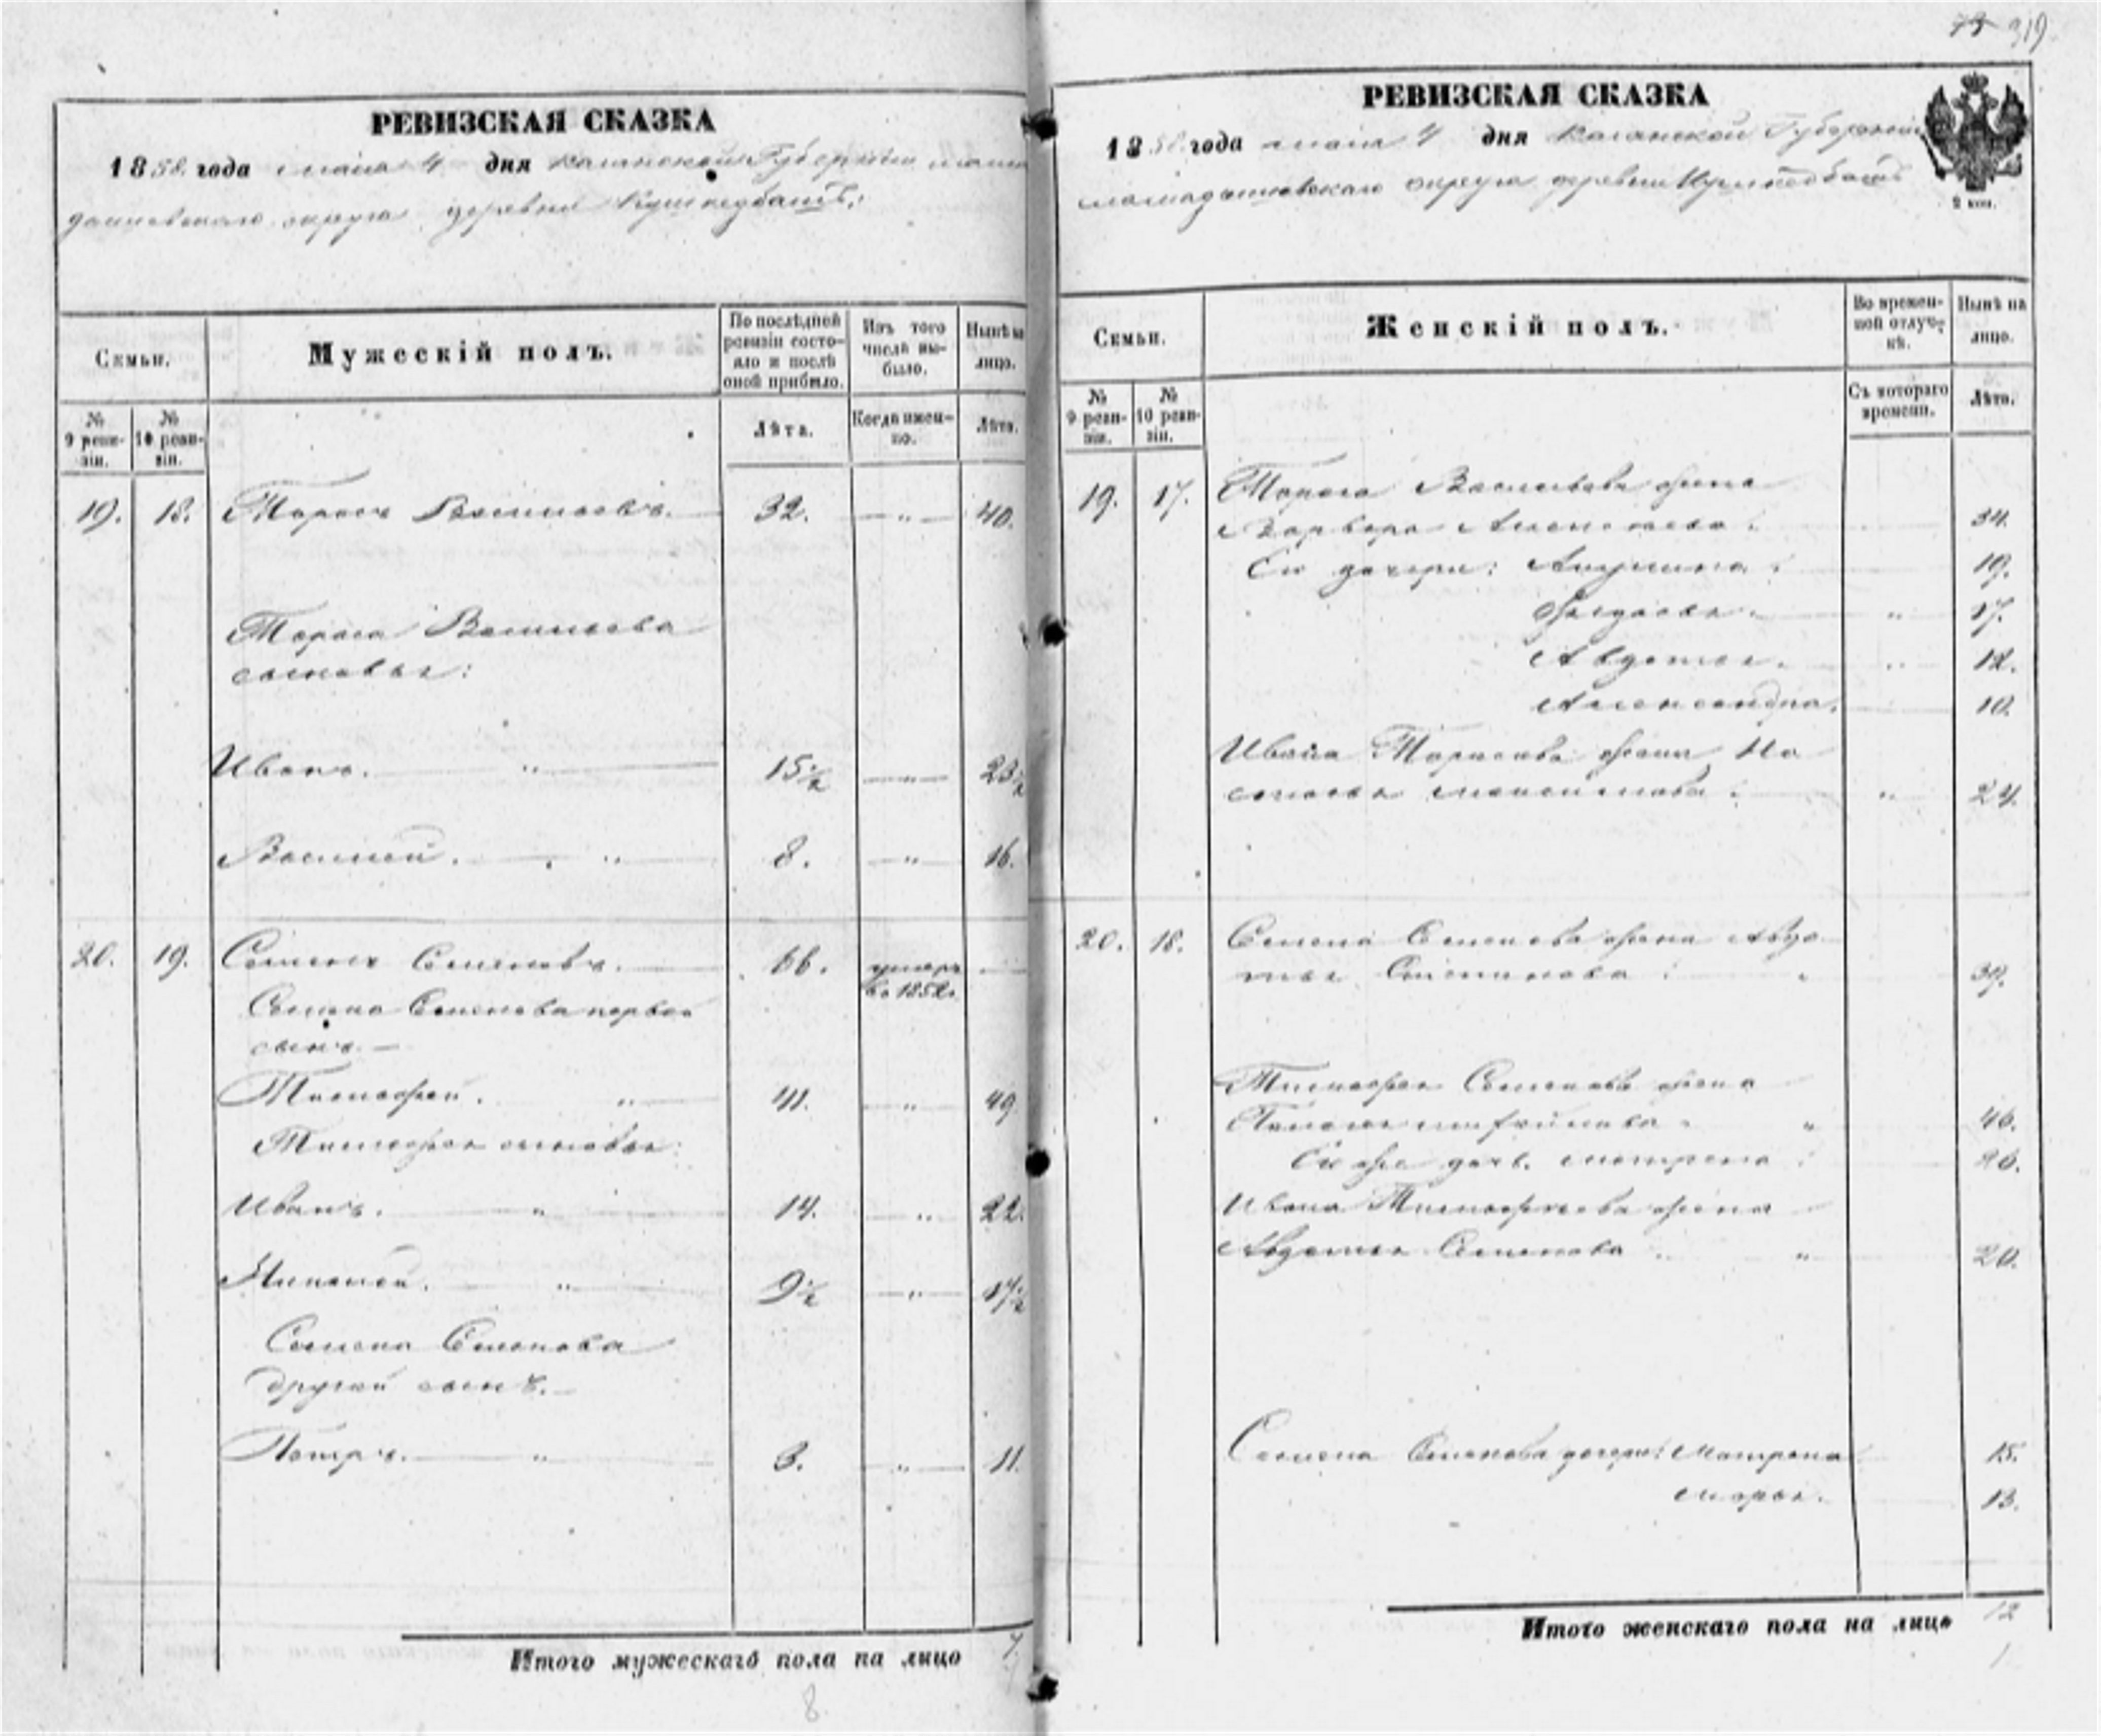 РЕВИЗСКАЯ СКАЗКА
1858 года мая 4 дня Казанской Губернии мама
дышевскаго округа деревни
Семьи.
Мужескій полъ.
По послѣдней ревизіи состояло и послѣ оной прибыло.
Изъ того числа выбыло.
Нынѣ на лицо.
№ 9 реви-зіи.
№ 10 реви-зіи.
Лѣта.
Когда имен-но.
Лѣта.
19. 18. Тарасъ Васильевъ. 32. — " — 40.
Тараса Васильева
сыновья:
Иванъ. " 15½ — " — 23½
Василей. " 8. — " — 16.
20. 19. Семенъ Семеновъ. 66. умеръ
въ 1852г.
Семена Семенова первой
сынъ. —
Тимофей. " 41. — " — 49
Тимофея сыновья:
Иванъ. " 14. — " — 22.
Николай. " 9½ — " — 17½
Семена Семенова
другой сынъ. —
Петръ. " 3. — " — 11.
Итого мужескаго пола на лицо 7
8
73 319
РЕВИЗСКАЯ СКАЗКА
1858 года мая 4 дня Казанской Губерніи
мамадышевскаго округа деревни
2 коп.
Семьи.
Женскій полъ.
Во времен-ной отлуч-кѣ.
Нынѣ на лицо.
№ 9 реви-зіи.
№ 10 реви-зіи.
Съ котораго времени.
Лѣта.
19. 17. Тараса Васильева жена
Варвара Алексеева. 34.
Ея дочери: Акулина. 19.
" 17.
Авдотья. " 12.
Александра. 10.
Ивана Тарасова жена На
стасья " 24.
20. 18. Семена Семенова жена Авдо
тья " 39.
Тимофея Семенова жена
" 46.
Ея же доч. матрена 26.
Ивана Тимофеева жена
Авдотья Семенова " 20.
Семена Семенова дочери: Матрена 15.
марья. 13.
Итого женскаго пола на лицо 12